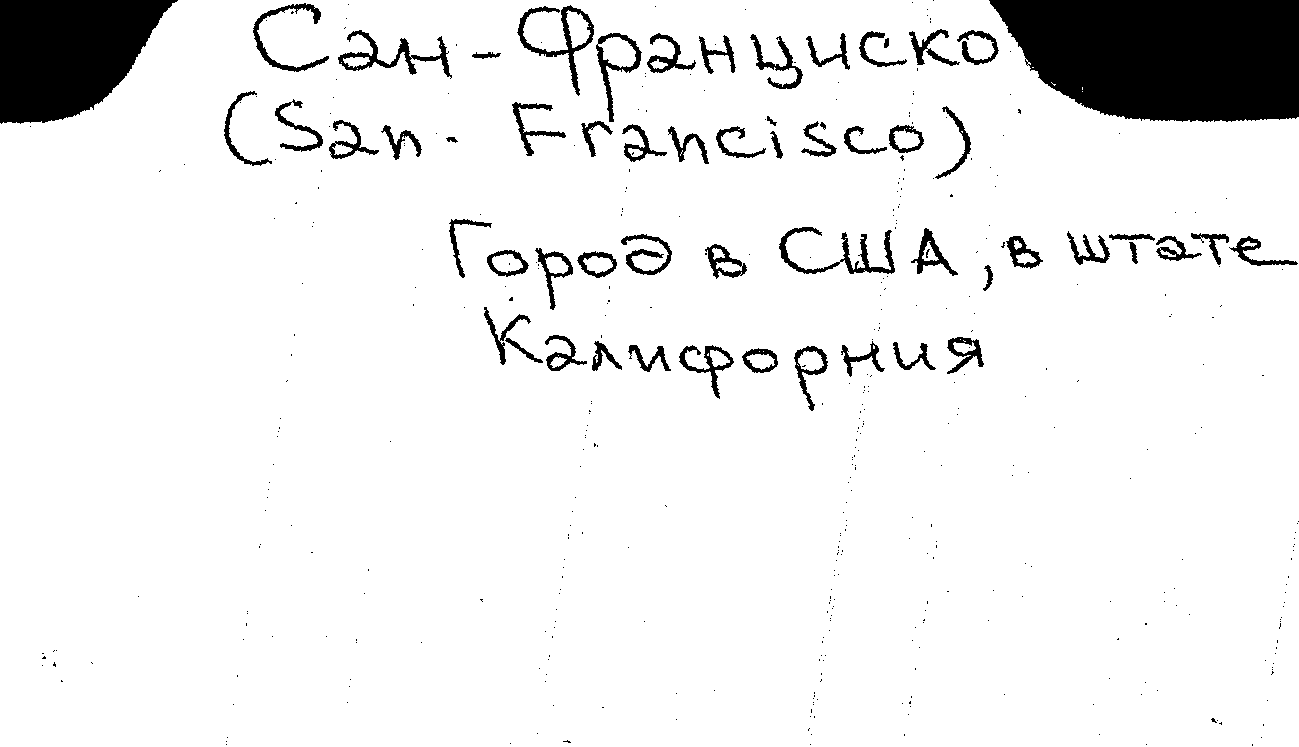 Сан-Франциско
(San-Francisco)
Город в США, в штате
Калифорния